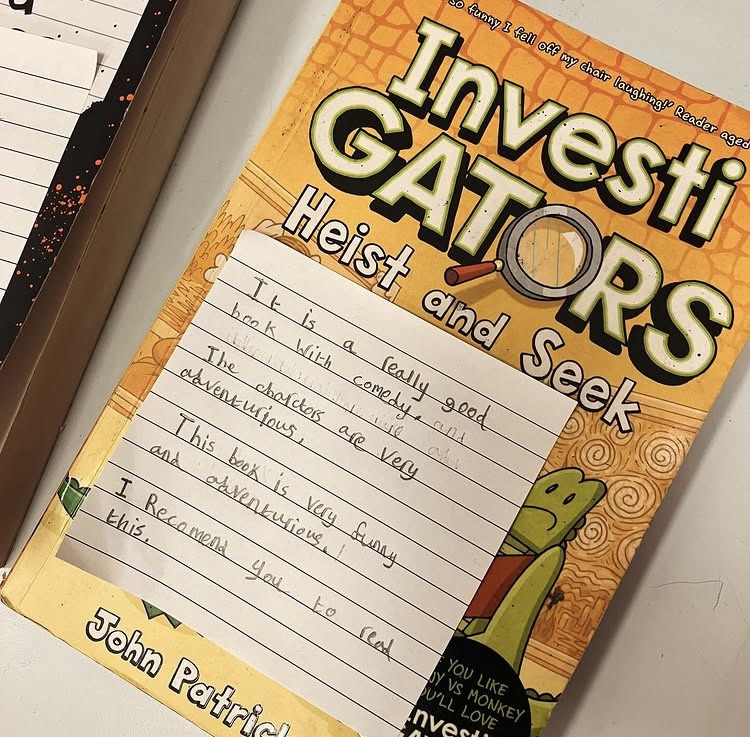 so funny I fell off my chair laughing!' Reader aged
Investi
GATORS
Heist and Seek
It is a really good
book with comedy.
The charctors are very
adventurious.
This book is very funny
and adventurious.
I Recomend you to read
this.
John Patrick
YOU LIKE
VS MONKEY
YOU'LL LOVE